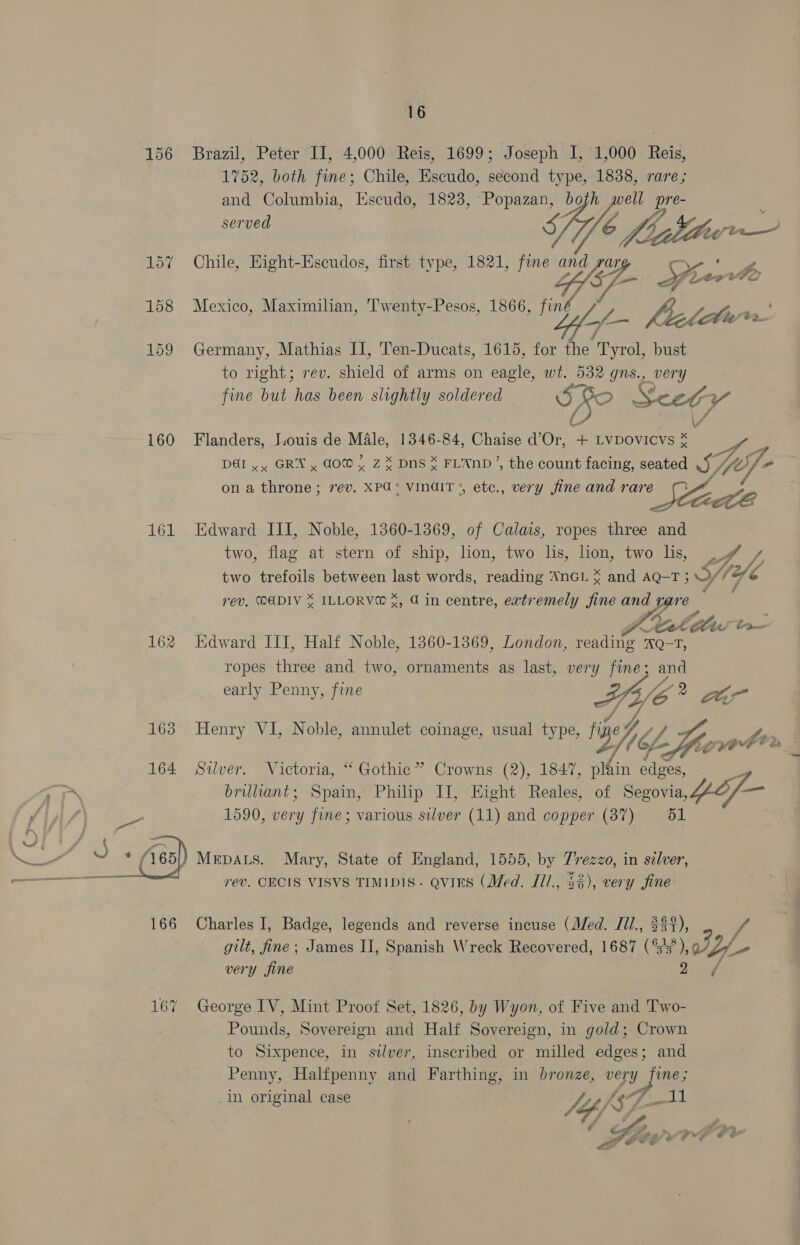 16
156 Brazil, Peter II, 4,000 Reis, 1699; Joseph I, 1,000 Reis,
1752, both fine; Chile, Escudo, second type, 1838, rare;
and Columbia, Escudo, 1823, Popazan, both well pre-
served
157 Chile, Eight-Escudos, first type, 1821, fine and rare
158 Mexico, Maximilian, Twenty-Pesos, 1866, fine
159 Germany, Mathias II, Ten-Ducats, 1615, for the Tyrol, bust
to right; rev. shield of arms on eagle, wt. 532 gns., very
fine but has been slightly soldered
160 Flanders, Louis de Mâle, 1346-84, Chaise d'Or, + LVDOVICVS
the count facing, seated
on a throne; rev. etc., very fine and rare
161 Edward III, Noble, 1360-1369, of Calais, ropes three and
two, flag at stern of ship, lion, two lis, lion, two lis,
two trefoils between last words, reading and AQ-T;
rev. in centre, extremely fine and rare
162 Edward III, Half Noble, 1360-1369, London, reading AQ-T,
ropes three and two, ornaments as last, very fine; and
early Penny, fine 2
163 Henry VI, Noble, annulet coinage, usual type, fine
164 Silver. Victoria, "Gothic" Crowns (2), 1847, plain edges,
brilliant; Spain, Philip II, Eight Reales, of Segovia,
1590, very fine; various silver (11) and copper (37) 51
* 165 MEDALS. Mary, State of England, 1555, by Trezzo, in silver,
rev. CECIS VISVS TIMIDIS. QVIES (Med. Ill.), very fine
166 Charles I, Badge, legends and reverse incuse (Med. Ill.),
gilt, fine; James II, Spanish Wreck Recovered, 1687
very fine 2
167 George IV, Mint Proof Set, 1826, by Wyon, of Five and Two-
Pounds, Sovereign and Half Sovereign, in gold; Crown
to Sixpence, in silver, inscribed or milled edges; and
Penny, Halfpenny and Farthing, in bronze, very fine;
in original case 11